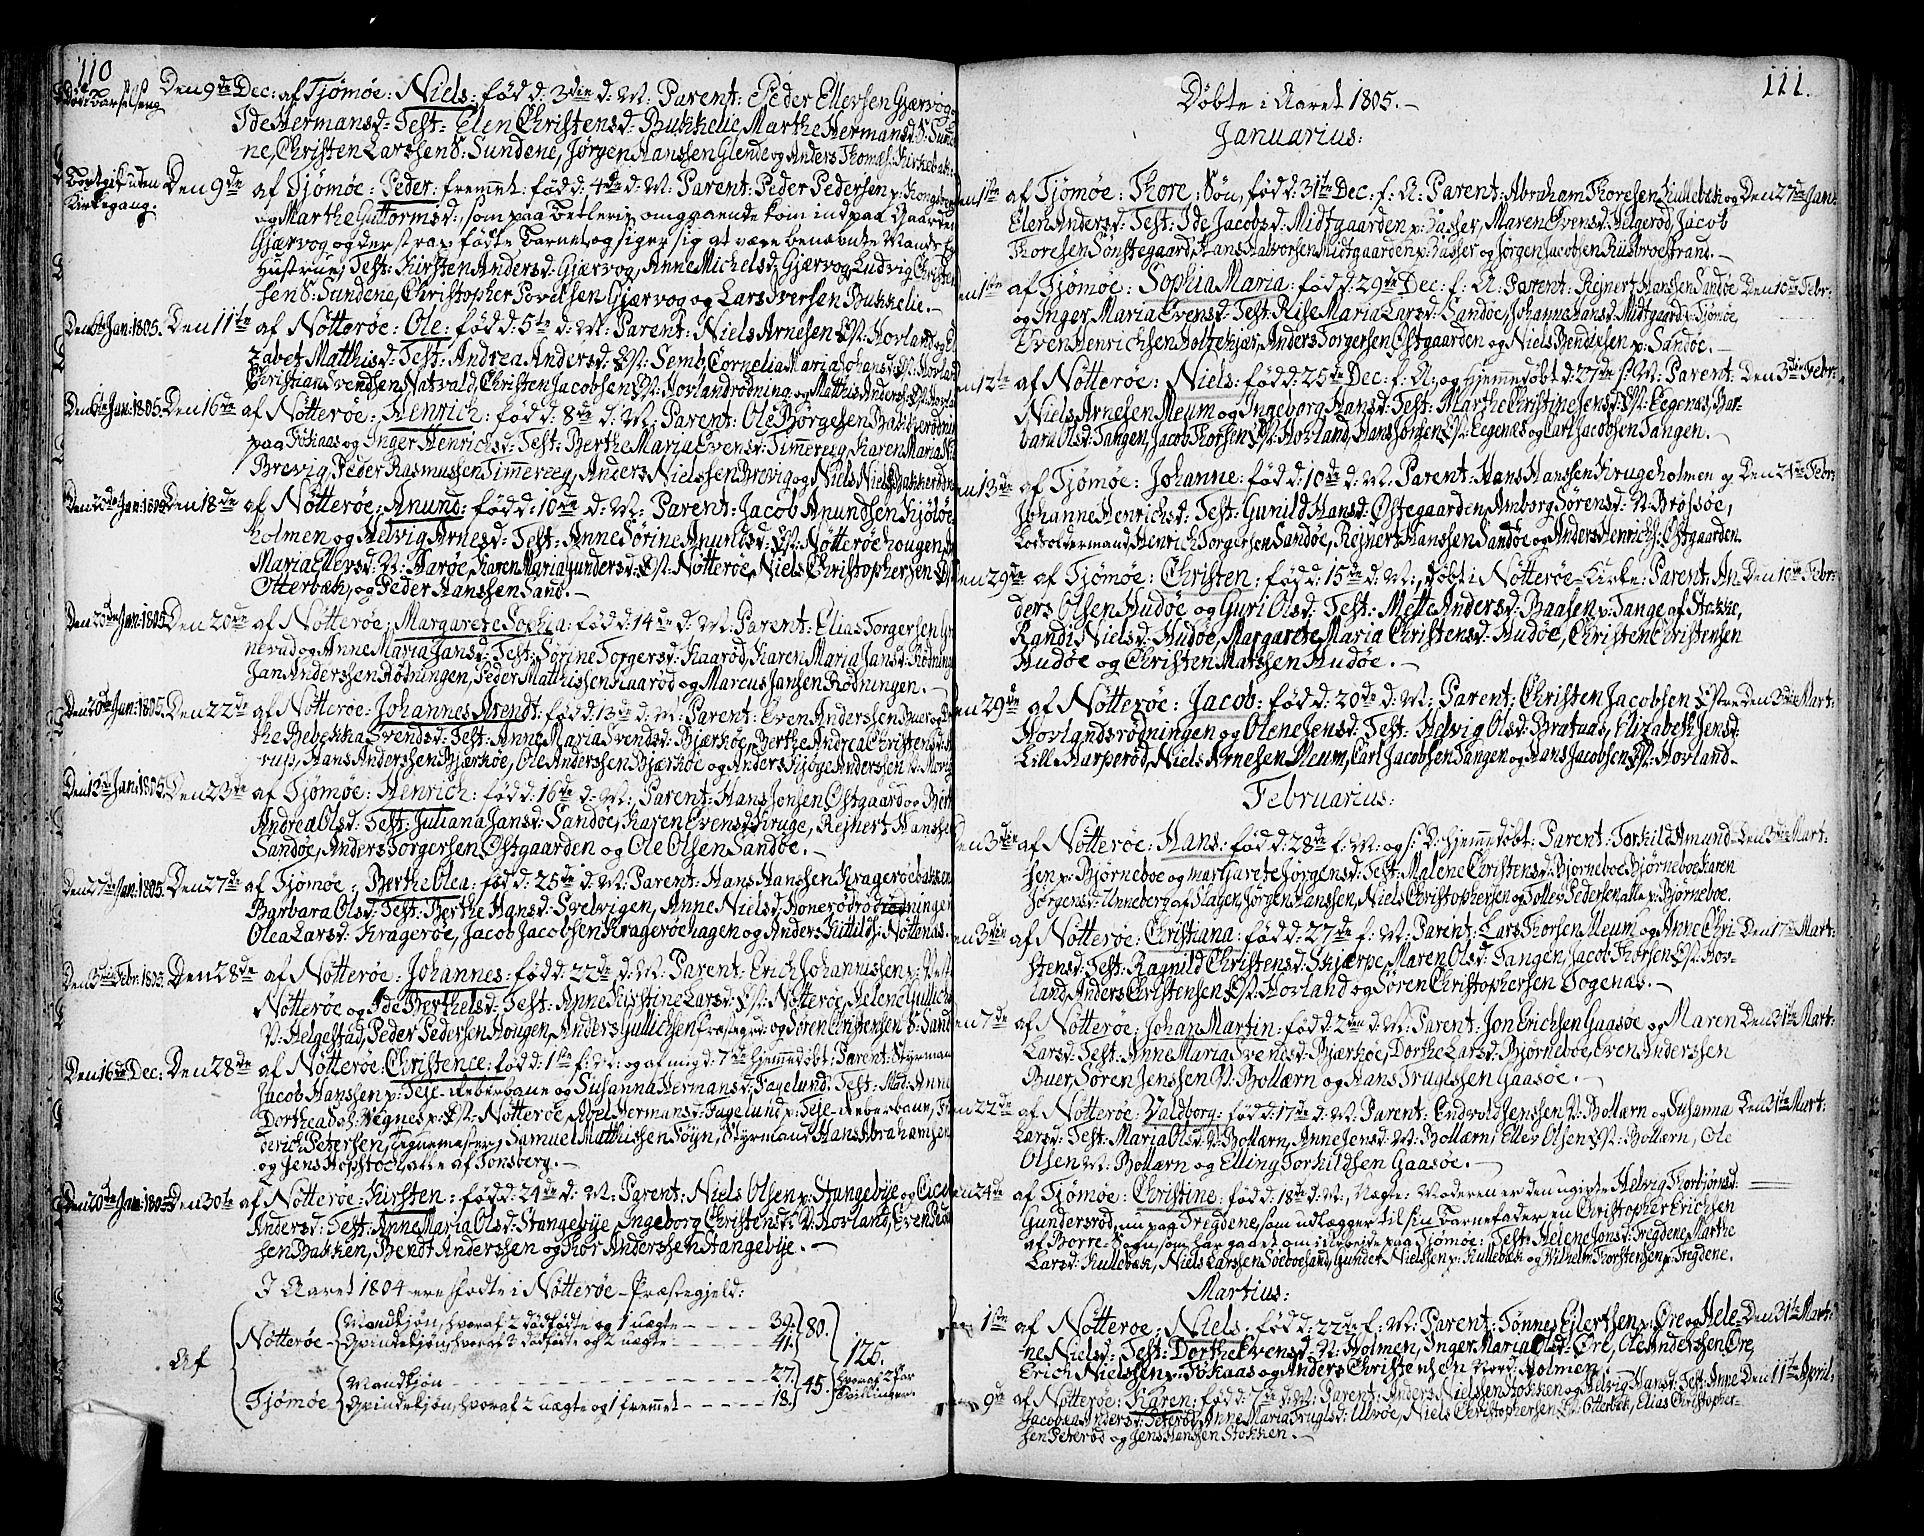 110
Den 9de Dec: af Tjömöe: Niels: född: 3den d: M: Parent: Peder Ellefsen Gjærvog og
Ide Hermansd: Test: Elen Christensd: Bukkelie, Marthe Hermansd: S: Sunde-
ne, Christen Larssen S: Sundene, Jörgen Hanssen Glende og Anders Thomes: Kirkebak:
Bortgik uden Kirkegang.
Den 9de af Tjömöe: Peder: fremmet: född: 4de d: M: Parent: Peder Pedersen p: Kongsberg
og Marthe Guttormsd:, som paa Betlerie omgaaende kom ind paa Gaarden
Gjærvog og der strax födte Barnet, og siger sig at være benævnte Mands
Hustrue, Test: Kirsten Andersd: Gjærvog, Anne Michelsd: Gjærvog, Ludvig Christen-
sen S: Sundene, Christopher Povelsen Gjærvog og Lars Iversen Bukkelie.
Den 6te Jan: 1805. Den 11te af Nötteröe: Ole: född: 5te d: M: Parent: Niels Arnesen Øst: Hovland og Eli-
zabet Matthisd: Test: Andrea Andersd: Øst: Semb, Cornelia Maria Johansd: Øst: Hovland
Christian Svendsen Natvald, Christen Jacobsen Øst: Hovlandrödning, og Matthis Anders: Øst: Hovland
Den 6te Jan: 1805. Den 16de af Nötteröe: Henrich: född: 8de d: M: Parent: Ole Börgesen Bakkerödning
paa Föhaas og Inger Henrichsd: Test: Berthe Maria Evens: Timmereeg, Karen Maria N:
Brevig, Peder Rasmussen Timmereeg, Anders Nielssen Brevig og Niels Niels: Bakkerödn:
Den 20de Jan: 1805 Den 18de af Nötteröe: Anund: född: 10de d: M: Parent: Jacob Anundsen Kjölöe-
holmen og Helvig Arnesd: Test: Anne Sörine Anundsd: Øst: Nötteröe hougen,
Maria Ellevsd: N: Haröe, Karen Maria Gundersd: Øst: Nötteröe, Niels Christophersen Øst:
Otterbæk, og Peder Hanssen Sand.
Den 20de Jan: 1805 Den 20de af Nötteröe: Margarete Sophia: född: 14de d: M: Parent: Elias Torgersen
nerud og Anne Maria Jansd: Test: Sörine Torgersd: Kaaröd, Karen Maria Jansd: Rödning
Jan Anderssen Rödningen, Peder Matthissen Kaaröd og Marcus Jansen Rödningen.
Den 20de Jan: 1805. Den 22de af Nötteröe: Johannes Arendt: född: 13de d: M: Parent: Even Anderssen Buer og
the Rebekka Svendsd: Test: Anne Maria Svendsd: Bjærköe, Berthe Andrea Christensd:
rup, Hans Anderssen Bjærköe, Ole Anderssen Bjærköe og Anders Fisbye Anderssen
Den 13de Jan: 1805. Den 23de af Tjömöe: Henrich: född: 16de d: M: Parent: Hans Jonsen Østgaard og Berthe
Andrea Olsd: Test: Juliana Jansd: Sandöe, Karen Evensd: Kruge, Rejnert Hanssen
Sandöe, Anders Torgersen Østgaarden og Ole Olsen Sandöe.
Den 27de Jan: 1805. Den 27de af Tjömöe: Berthe Olea: född: 25de d: M: Parent: Hans Hanssen Krageröebakken
Barbara Olsd: Test: Berthe Hansd: Svelvigen, Anne Nielsd: Honerödrödningen
Olea Larsd: Krageröe, Jacob Jacobsen Krageröehagen og Anders Kittilds: Nöttenæs.
Den 3die Febr: 1805. Den 28de af Nötteröe: Johannes: född: 22de d: M: Parent: Erich Johannissen p: Vest:
Nötteröe og Ide Berthelsd: Test: Anne Kirstine Larsd: Øst: Nötteröe, Helene Gullichs:
N: Helgestad, Peder Pedersen Hougen, Anders Gullichsen og Sören Christensen S: Sand
Den 16de Dec: Den 28de af Nötteröe: Christence: född: 1ste f: d: og af mig d: 7de hjemmedöbt: Parent: Styrmand
Jacob Hanssen p: Teje-Reberbane og Susanna Hermansd: Fagelund: Test: Mad: Anne
Dorthea Vegnes p: Øst: Nötteröe, Abel Hermansd: Fagelund p: Teje-Reberbane,
derich Petersen, Samuel Matthissen Föyn, Styrmand Hans Abrahamsen
og Jens Hopstoch, alle af Tonsberg.
Den 20de Jan: 1805 Den 30te af Nötteröe: Kirsten: född: 24de d: M: Parent: Niels Olsen p: Stangebye og Cicel
Andersd: Test: Anne Maria Olsd: Stangebye, Ingeborg Christensd: N: Hovland, Even
sen Bakken, Bendt Anderssen og Thor Anderssen Stangebye.
I Aaret 1804 ere födte i Nötteröe-Præstegjeld:
Af Nötteröe Mandkjön, hvoraf 2 dödfödte og 1 uægte 39. 80.
Qvindekjön, hvoraf 3 dödfödte og 2 uægte 41.
Tjömöe Mandkjön 27. 45.
Qvindekjön, hvoraf 2 uægte og 1 fremmet 18.
125. hvoraf 2 Par Tvillinger.
111.
Döbte i Aaret 1805.
Januarius:
1ste af Tjömöe: Thore: Sön, född: 31te Dec: f: A: Parent: Abraham Thoresen Kullebæk og Den 27de Jan:
Elen Andersd: Test: Ide Jacobsd: Midtgaarden p: Hasser, Maren Evensd: Helgeröd, Jacob
Thoresen Sönstegaard, Hans Halvorsen Midtgaarden p: Hasser og Jörgen Jacobsen Rusbroestrand.
1ste af Tjömöe: Sophia Maria: född: 29de Dec: f: A: Parent: Rejnert Hanssen Sandöe Den 10de Febr:
og Inger Maria Evensd: Test: Rise Maria Larsd: Sandöe, Johanne Jansd: Midtgaard p: Tjömöe,
Even Henrichsen Holtekjær, Anders Torgersen Østgaarden og Niels Bendixsen p: Sandöe.
12te af Nötteröe: Niels: född: 25de Dec: f: A: og hjemmedöbt d: 27de s: M: Parent: Den 3die Febr:
Niels Arnesen Meum og Ingeborg Hansd: Test: Marthe Christine Jensd: Øst: Eegenæs, Bar-
bara Olsd: Tangen, Jacob Thorsen Øst: Hovland, Hans Jörgen Øst: Eegenes og Carl Jacobsen Tangen.
13de af Tjömöe: Johanne: född: 10de d: M: Parent: Hans Hanssen Krugeholmen og Den 24de Febr:
Johanne Henrichsd: Test: Gunild Hansd: Østegaarden, Amborg Sörensd: N: Brösöe,
Lodsoldermand Henrich Torgersen Sandöe, Rejnert Hanssen Sandöe og Anders Henrichs: Østgaarden.
29de af Tjömöe: Christen: född: 15de d: M:, döbt i Nötteröe-Kirke: Parent: An- Den 10de Febr:
ders Olsen Hudöe og Guri Olsd: Test: Mette Andersd: Baasen p: Tange af Stokke,
Randi Nielsd: Hudöe, Margarete Maria Christensd: Hudöe, Christen Christensen
Hudöe og Christen Matssen Hudöe.
29de af Nötteröe: Jacob: född: 20de d: M: Parent: Christen Jacobsen Østre Den 3die Mart:
Hovlandsrödningen og Olene Jensd: Test: Helvig Olsd: Brataas, Elizabeth Jensd:
Lille Harperöd, Niels Arnesen Meum, Carl Jacobsen Tangen og Hans Jacobsen Øst: Hovland.
Februarius:
3die af Nötteröe: Hans: född: 28de f: M: og s: D: hjemmedöbt: Parent: Torkild Amund- Den 3die Mart:
sen p: Björneboe og Margarete Jörgensd: Test: Malene Christensd: Björneboe, Karen
Jörgensd: Unneberg af Slagen, Jörgen Hanssen, Niels Christophersen og Tollev Pedersen, alle p: Björneboe.
3die af Nötteröe: Christiana: född: 27de f: M: Parent: Lars Thorsen Meum og Anne Chri- Den 17de Mart:
stensd: Test: Ragnild Christensd: Skjærpe, Maren Olsd: Tangen, Jacob Thorsen Øst: Hov-
land, Anders Christensen Øst: Hovland og Sören Christophersen Togenæs.
7de af Nötteröe: Johan Martin: född: 2den d: M: Parent: Jon Erichsen Gaasöe og Maren Den 31te Mart:
Larsd: Test: Anne Maria Svendsd: Bjærköe, Dorthe Larsd: Björneboe, Even Anderssen
Buer, Sören Jenssen N: Bollærn og Hans Truglssen Gaasöe.
22de af Nötteröe: Valdborg: född: 17de d: M: Parent: Endvold Jenssen N: Bollærn og Susanna Den 31te Mart:
Larsd: Test: Maria Olsd: N: Bollærn, Anne Jensd: M: Bollærn, Ellev Olsen Øst: Bollærn, Ole
Olsen M: Bollærn og Elling Torkildsen Gaasöe.
24de af Tjömöe: Christine: född: 18de d: M:, Uægte: Moderen er den ugivte Helvig Thorbjönsd:
Gundersröd, nu paa Tregdene, som udlægger til sin Barnefader en Christopher Erichsen
af Borre-Sogn, som har gaaet om i Arbejde paa Tjömöe: Test: Helene Jonsd: Tregdene, Marthe
Larsd: Kullebæk, Niels Larssen Soeboesand, Gunder Nielssen p: Kullebæk og Wilhelm Thorstensen p: Tregdene.
Martius:
1ste af Nötteröe: Niels: född: 22de f: M: Parent: Tönnes Eilertsen p: Øre og Hele- Den 31te Mart:
ne Nielsd: Test: Dorthe Evensd: N: Holmen, Inger Maria Olsd: Øre, Ole Anderssen Øre,
Erich Nielssen p: Föhaas og Anders Christensen Nord: Holmen.
9de af Nötteröe: Karen: född: 7de d: M: Parent: Anders Nielssen Stokken og Helvig Hansd: Test: Anne Den 11te April:
Jacobea Andersd: Peteröd, Anne Maria Truglsd: Ulvöe, Niels Christophersen Øst: Otterbæk, Elias Christopher-
sen Peteröd og Jens Hanssen Stokken.